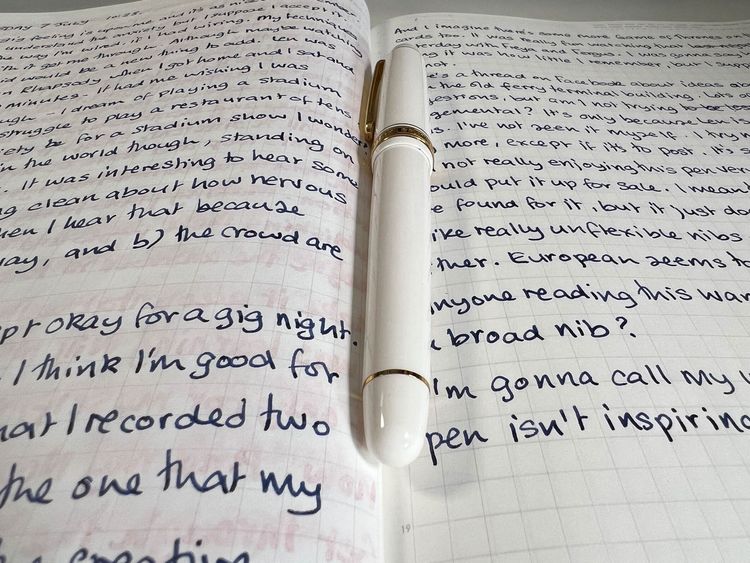 day 7 July 10:35.
feeling is upon me, and it's as nice
understand the anxiety, but I suppose I accept
the way I'm wired, if I had string. My technically
to get me through. Although maybe watching
would be a new thing to add. Len was
Rhapsody when I got home and I sat and
minutes. It had me wishing I was
I dream of playing a stadium
struggle to play a restaurant of tens
be for a stadium show I wonder
in the world though, standing on
It was interesting to hear some
clean about how nervous
when I hear that because
way, and b) the crowd are
okay for a gig night.
I think I'm good for
that I recorded two
the one that my
And I imagine there's some more
too. It was really
with Freya and Fergus. I was
it was how little I remember, but I
a thread on Facebook about ideas
the old ferry terminal building. Lots of
but am I not trying to be too
gemental? It's only because Len's
I've not seen it myself. I try n
more, except if it's to post. It's s
not really enjoying this pen ver
ould put it up for sale. I meant
found for it, but it just do
ike really unflexible nibs
ther. European seems to
nyone reading this wan
broad nib?.
I'm gonna call my
pen isn't inspiring
19